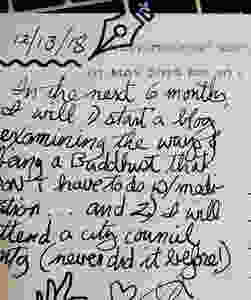 12/13/18
In the next 6 months,
I will 1) start a blog
examining the ways of
being a Buddhist that
don't have to do w/ medi-
tation... and 2) I will
attend a city council
mtg (never did it before!)